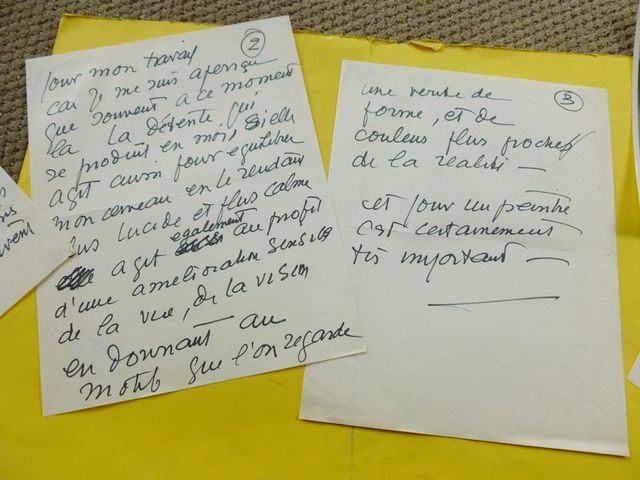 2
pour mon travail
car je me suis aperçu
que souvent a ce moment
la la détente qui
se produit en moi, si elle
agit aussi pour equilibrer
mon cerveau en le rendant
plus lucide et plus calme
agit egalement au profit
d'une amelioration sensible
de la vue, de la vision
en donnant — au
motif que l'on regarde
3
une verite de
forme, et de
couleurs plus proche
de la realité —
et pour un peintre
c'est certainement
très important —